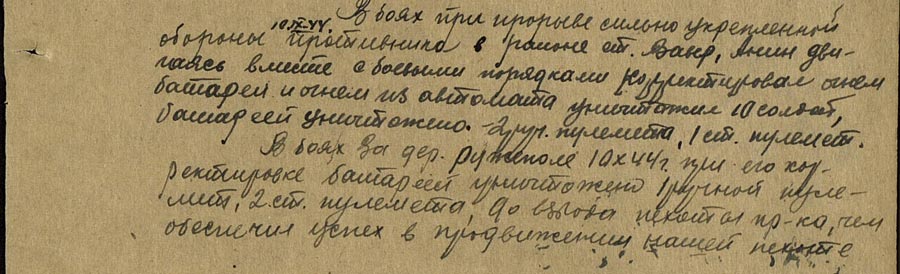 В боях при прорыве сильно укрепленной
10.IX-44.
обороны противника в районе ст. Вавер, Анин дви-
гаясь вместе с боевыми порядками корректировал огнем
батареи и огнем из автомата уничтожил 10 солдат,
батареей уничтожено - 2 руч. пулемета, 1 ст. пулемет.
В боях за дер. Ружеполе 10 X 44 г. при его кор-
ректировке батареей уничтожено 1 ручной пуле-
мет, 2 ст. пулемета, до взвода пехоты пр-ка, чем
обеспечил успех в продвижении нашей пехоте